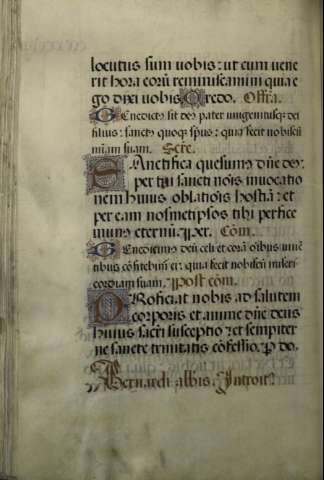 locutus sum uobis: ut cum uene
rit hora eorū reminiscamini quia e
go dixi uobis. Credo. Offra.
Benedictus sit ds̄ pater unigenitusqȝ dei
filius: sanctus quoqȝ spūs: quia fecit nobiscū
mīam suam. Secr.
Sanctifica quesumus dn̄e ds̄:
per tui sancti nōis inuocatio
nem huius oblationis hostiā: et
per eam nosmetipsos tibi perfice
munus eternū. Per. Cōm.
Benedicimus deū celi et corā oībus uiuē
tibus cōfitebimur ei: quia fecit nobiscū miseri
cordiam suam. Post cōm.
Proficiat nobis ad salutem
corporis et anime dn̄e deus
huius sacrī susceptio: et sempiter
ne sancte trinitatis cōfessio. P do.
Bernardi abbis. Introit.